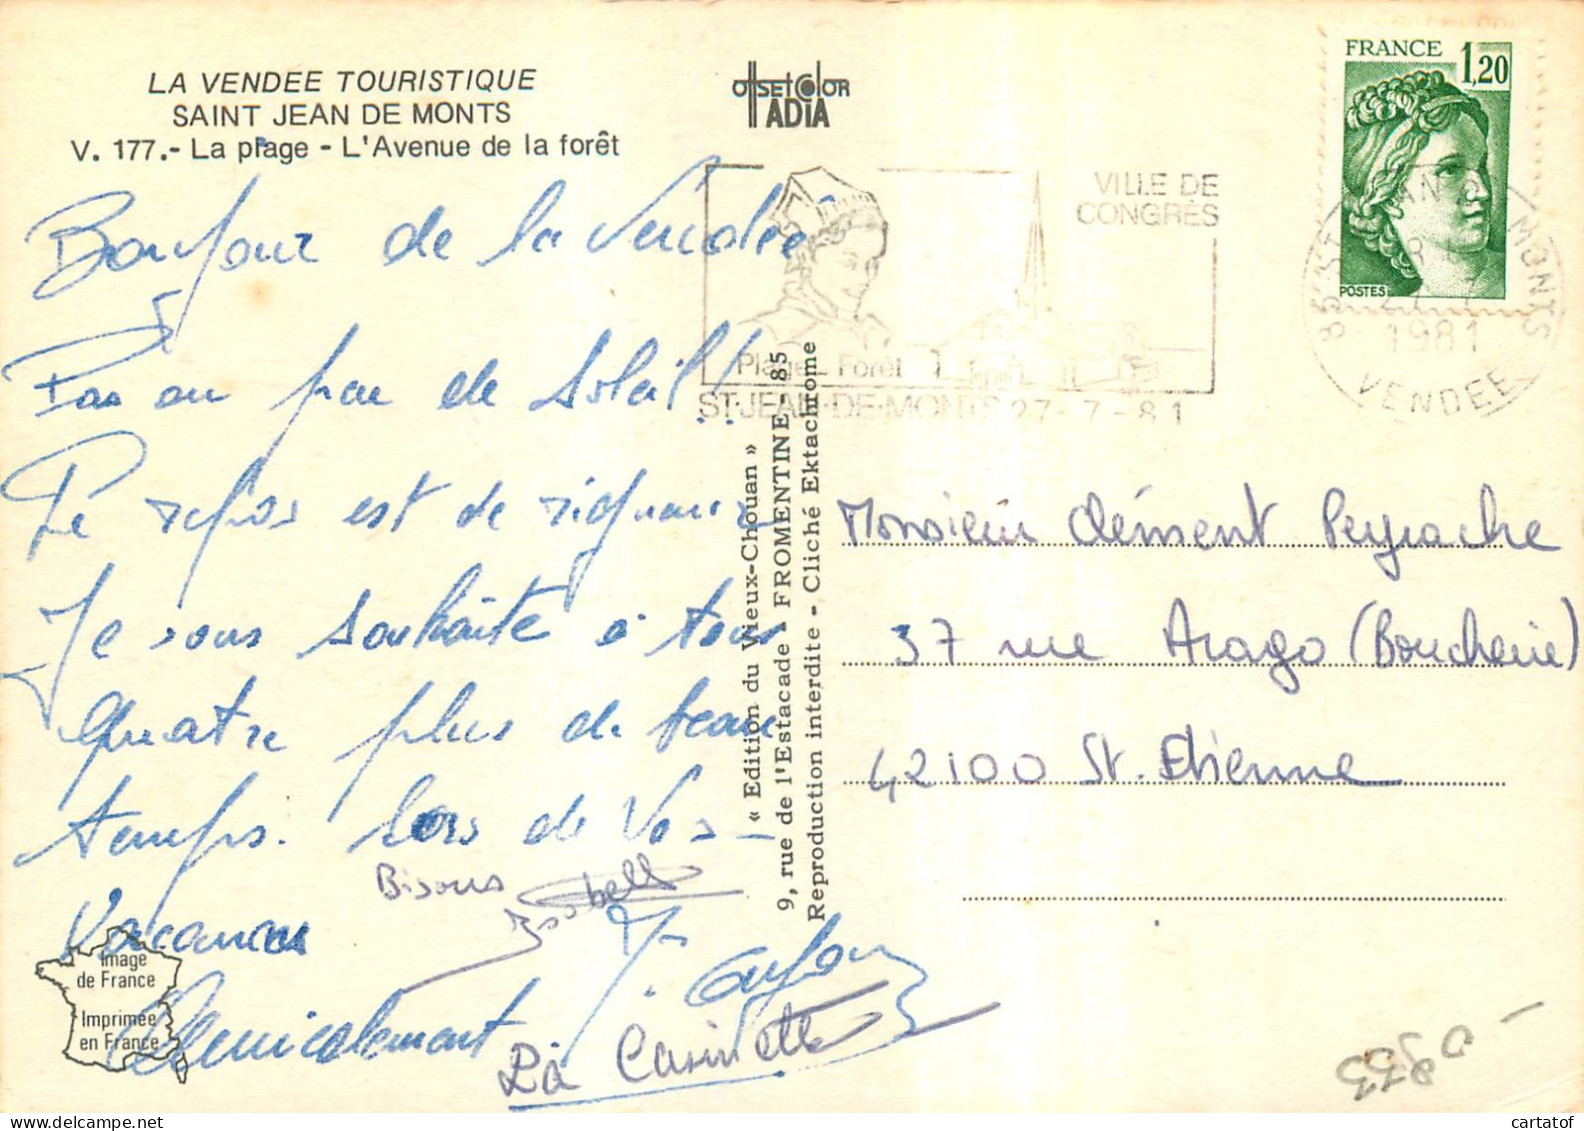 LA VENDEE TOURISTIQUE
SAINT JEAN DE MONTS
V. 177.- La plage - L'Avenue de la forêt
offsetcolor
ADIA
FRANCE 1,20
POSTES
VILLE DE
CONGRÈS
Plage - Forêt
ST-JEAN-DE-MONTS 27-7-81
85 ST
MONTS
1981
VENDEE
Bonjour de la Vendée
Pas un peu de Soleil!!
Le repos est de rigueur
Je vous souhaite à tous
quatre plus de beau
temps. lors de Vos
Vacances
Amicalement
Bisous
Isabelle
La Casinette
« Edition du Vieux-Chouan »
9, rue de l'Estacade - FROMENTINE - 85
Reproduction interdite - Cliché Ektachrome
Monsieur Clément Peyrache
37 rue Arago (Boucherie)
42100 St. Etienne
Image
de France
Imprimée
en France
cartatof